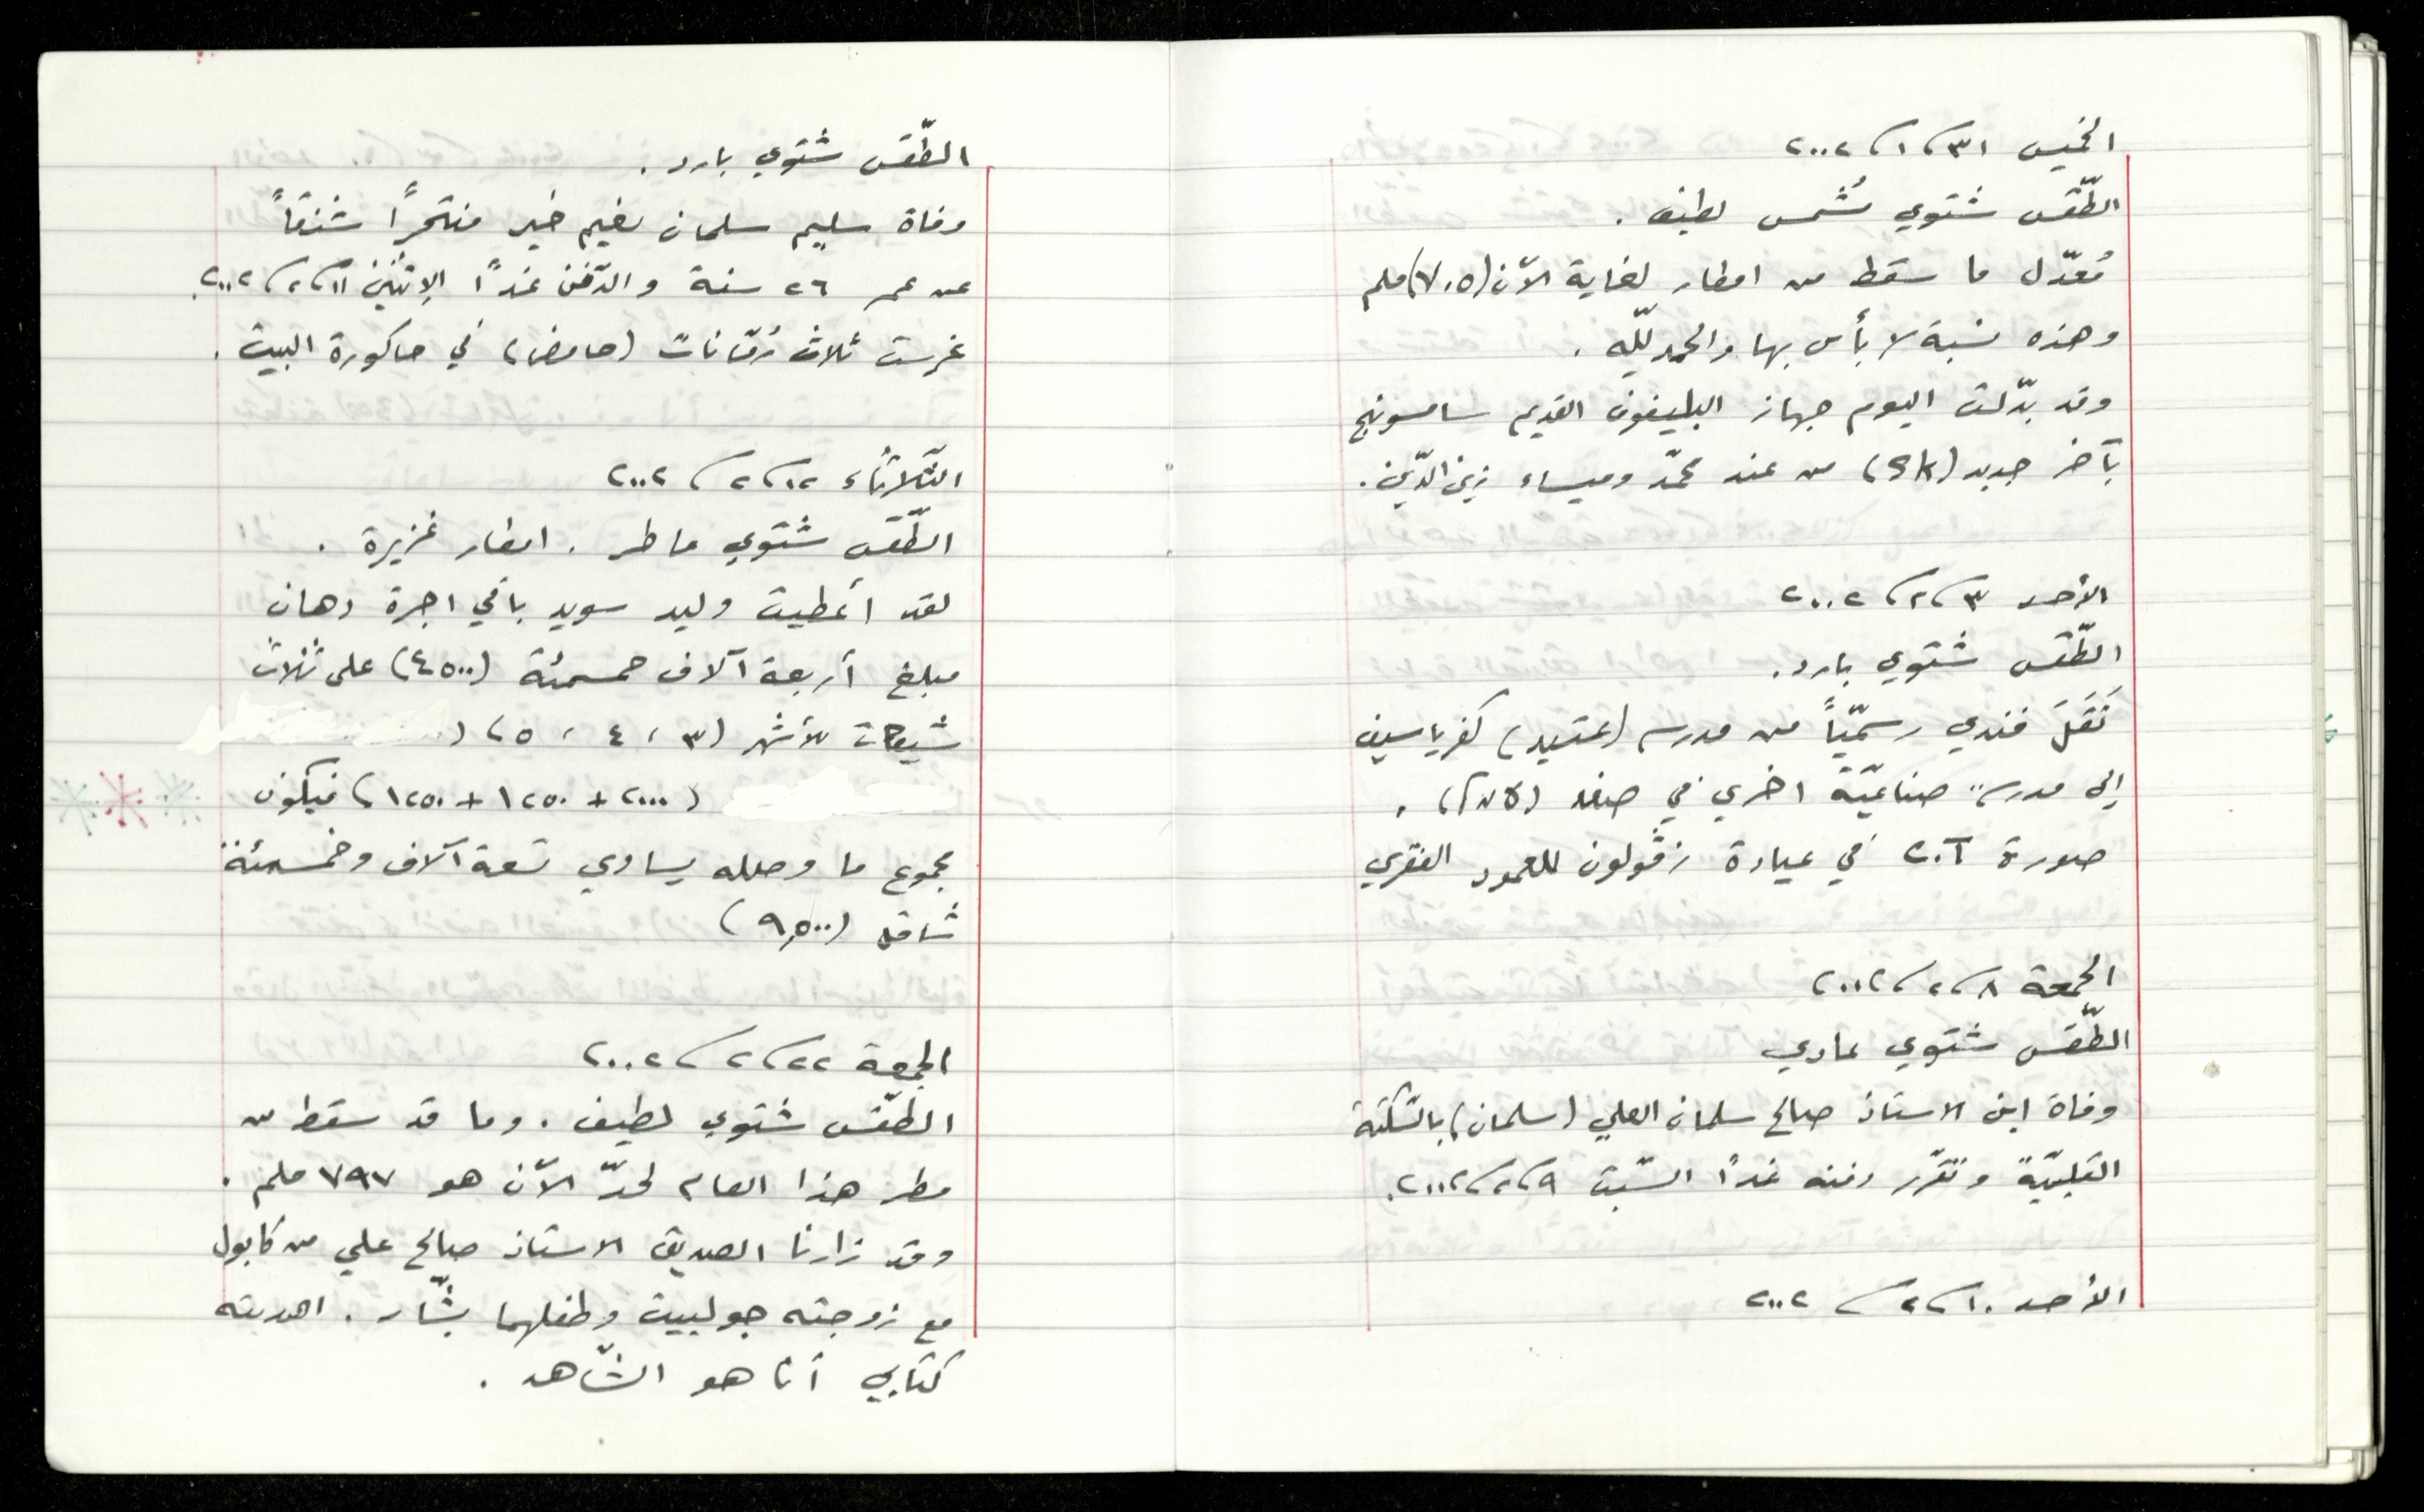 الخميس ٣١/١/٢٠٠٢
الطّقس شتوي مُشمس لطيف .
مُعدّل ما سقط من امطار لغاية الآن (٧٠٥) ملم
وهذه نسبة لا بأس بها والحمد للّه .
وقد بدّلت اليوم جهاز البليفون القديم سامسونج
بآخر جديد من عند محمّد وميساء زين الدّين .
الأحد ٣/٢/٢٠٠٢
الطّقس شتوي بارد .
نَقَلَ فندي رسميّاً من مدرسة (عتيد) كفرياسيف
إلى مدرسة صناعيّة اخرى في صفد .
صورة C.T في عيادة زڤولون للعمود الفقري
الجمعة ٨/٢/٢٠٠٢
الطّقس شتوي عادي
وفاة ابن الاستاذ صالح سلمان العلي (سلمان) بالسّكتة
القلبيّة وتقرّر دفنه غداً السّبت ٩/٢/٢٠٠٢.
الأحد ١٠/٢/٢٠٠٢
الطّقس شتوي بارد .
وفاة سليم سلمان نعيم خير منتحراً شنقاً
عن عمر ٢٦ سنة والدّفن غداً الإثنين ١١/٢/٢٠٠٢.
غرست ثلاث رُمّانات (حامض) في حاكورة البيت .
الثّلاثاء ١٢/٢/٢٠٠٢
الطّقس شتوي ماطر . امطار غزيرة .
لقد أعطيت وليد سويد باقي اجرة دهان
مبلغ أربعة آلاف خمسمئة (٤٥٠٠) على ثلاث
شيكات للأشهر (٣ ، ٤ ، ٥) (
(٢٠٠٠ + ١٢٥٠ + ١٢٥٠) فيكون
مجموع ما وصله يساوي تسعة آلاف وخمسمئة
شاقل (٩,٥٠٠)
الجمعة ٢٢/٢/٢٠٠٢
الطّقس شتوي لطيف . وما قد سقط من
مطر هذا العام لحدّ الآن هو ٧٩٧ ملم .
وقد زارنا الصديق الاستاذ صالح علي من كابول
مع زوجته جولييت وطفلهما بشّار . اهديته
كتابي أنا هو الشّاهد .